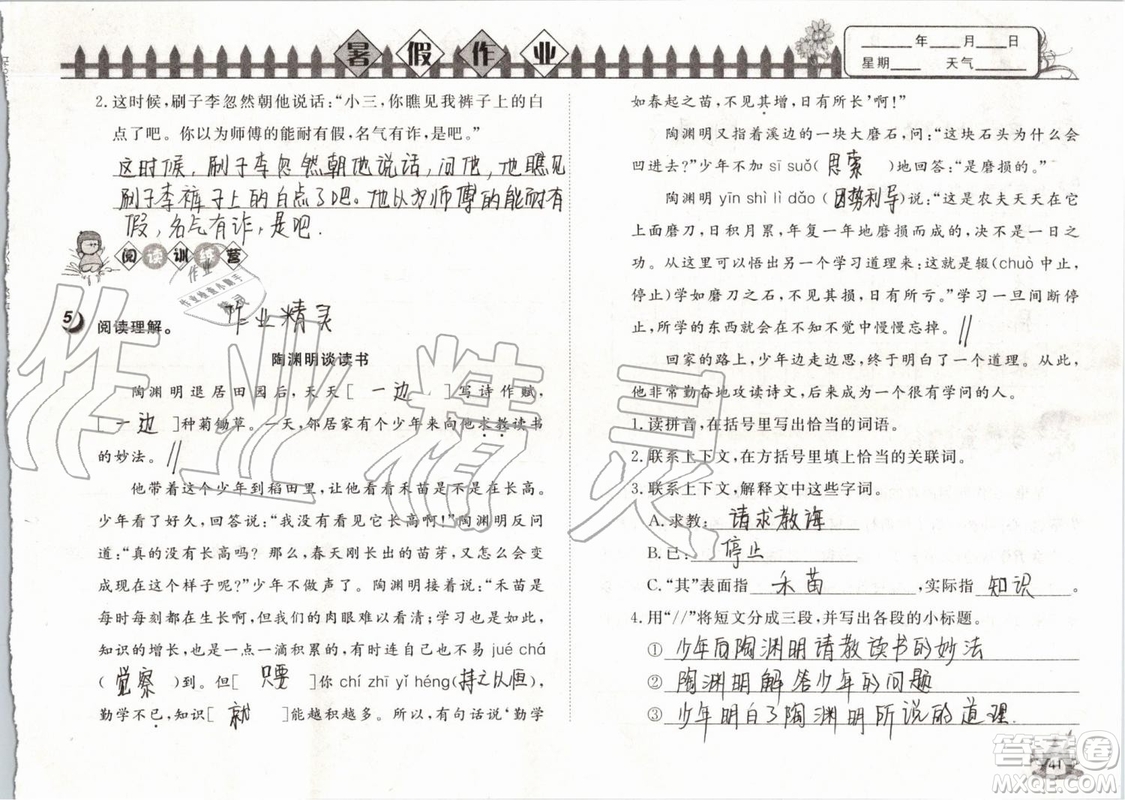 暑假作业
____年____月____日
星期____ 天气____
2.这时候,刷子李忽然朝他说话:“小三,你瞧见我裤子上的白
点了吧。你以为师傅的能耐有假,名气有诈,是吧。”
这时候,刷子李忽然朝他说话,问他,他瞧见
刷子李裤子上的白点了吧。他以为师傅的能耐有
假,名气有诈,是吧.
阅读训练营
作业精灵
5 阅读理解。
陶渊明谈读书
陶渊明退居田园后,天天[ 一边 ]写诗作赋,
[ 一边 ]种菊锄草。一天,邻居家有个少年来向他求教读书
的妙法。 //
他带着这个少年到稻田里,要他看看禾苗是不是在长高。
少年看了好久,回答说:“我没看见它长高啊!”陶渊明反问
道:“真的没有长高吗?那么,春天刚长出的苗芽,又怎么会变
成现在这个样子呢?”少年不做声了。陶渊明接着说:“禾苗
每时每刻都在生长,只是我们的肉眼难以看清;学习也一样,
知识的增长,也是一点一滴积累的,有时连自己也难以 jué chá
( 觉察 )到。但[ 只要 ]你 chí zhī yǐ héng(持之以恒),
勤学不已,知识[ 就 ]能越积越多。所以,有句话说‘勤学
如春起之苗,不见其增,日有所长’啊!”
陶渊明又指着溪边的一块大磨石,问:“这块石头为什么会
凹进去?”少年不加 sī suǒ( 思索 )地回答:“是磨损的。”
陶渊明 yīn shì lì dǎo(因势利导)说:“这是农夫天天在它
上面磨刀,日积月累,年复一年地磨损而成的,决不是一日之
功。从这里可以悟出另一个学习道理来:这就是辍(chuò 中止,停
止)学如磨刀之石,不见其损,日有所亏。”学习一旦间断停
止,所学的东西就会在不知不觉中慢慢忘掉。 //
回家的路上,少年边走边想,终于明白了一个道理。从此,
他就非常勤奋地攻读诗文,后来成为一个很有学问的人。
1.读拼音,在括号里写出恰当的词语。
2.联系上下文,在方括号里填上恰当的关联词。
3.联系上下文,解释文中这些字词。
A.求教: 请求教诲
B.已: 停止
C.“其”表面指 禾苗 ,实际指 知识 。
4.用“//”将短文分成三段,并写出各段的小标题。
① 少年向陶渊明请教读书的妙法
② 陶渊明解答少年的问题
③ 少年明白了陶渊明所说的道理.
41
答案卷
MXQE.COM
作业精灵